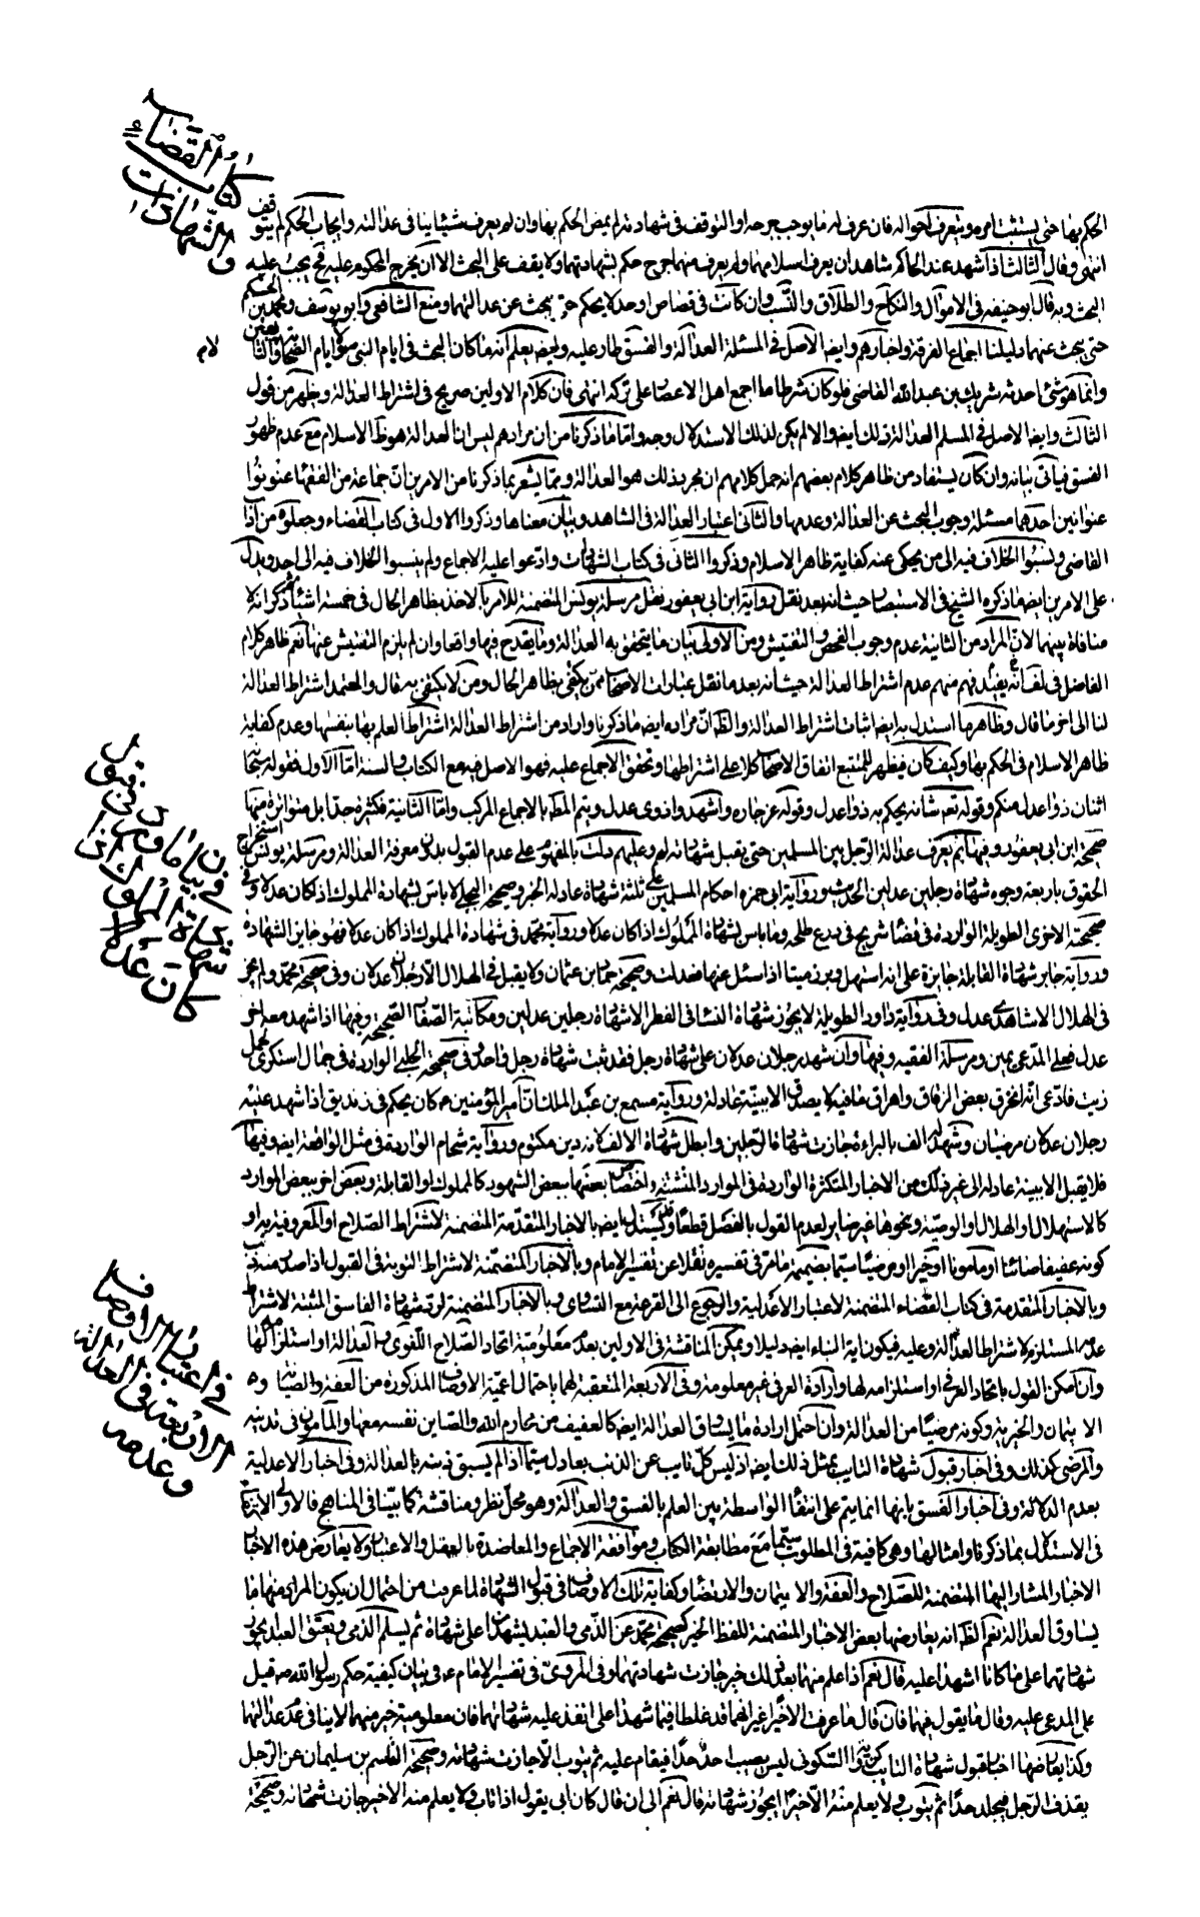 كتاب القضاء
والشهادات
الحكم بها حتى يستثبت امره ويتعرف احواله فان عرف له ما يوجب جرحه او التوقف في شهادته لم يمض الحكم بها وان لم يعرف شيئا ينافي عدالته وايجاب الحكم لم يتوقف
انتهى وقال الثالث اذا شهد عند الحاكم شاهدان يعرف اسلامهما ولم يعرف منهما جرح حكم بشهادتهما ولا يقف على البحث الا ان يجرح المحكوم عليه فح يجب عليه
البحث وبه قال ابو حنيفه في الاموال والنكاح والطلاق والنسب وان كانت في قصاص او حد لا يحكم حتى يبحث عن عدالتهما ومنع الشافعي وابو يوسف ومحمد بن الحكم
حتى يبحث عنهما دليلنا اجماع الفرقة واخبارهم وايضا الاصل في المسئلة العدالة والفسق طار عليه وايضا يعلم انه ما كان البحث في ايام النبي ولا ايام الصحابة والتابعين
وانما هو شئ احدثه شريك بن عبد الله القاضي فلو كان شرطا ما اجمع اهل الاعصار على تركه انتهى فان كلام الاولين صريح في اشتراط العدالة ويظهر من قول
الثالث وايضا الاصل في المسلم العدالة ذلك ايضا والا لم يكن لذلك الاستدلال وجه واما ما ذكرنا من ان مرادهم ليس ان العدالة هو ظ الاسلام مع عدم ظهور
الفسق فياتى بيانه وان كان يستفاد من ظاهر كلام بعضهم انه حمل كلامهم ان مجرد ذلك هو العدالة ومما يشعر بما ذكرنا من الامرين ان جماعة من الفقهاء عنونوا
عنوانين احدهما مسئلة وجوب البحث عن العدالة وعدمها والثاني اعتبار العدالة في الشاهد وبيان معناها وذكروا الاول في كتاب القضاء وجعلوه من آداب
القاضي ونسبوا الخلاف فيه الى من يحكى عنه كفاية ظاهر الاسلام وذكروا الثاني في كتاب الشهادات وادعوا عليه الاجماع ولم ينسبوا الخلاف فيه الى احد ويدل
على الامرين ايضا ما ذكره الشيخ في الاستبصار حيث انه بعد نقل رواية ابن ابي يعفور ينقل مرسلة يونس المتضمنة للامر بالاخذ بظاهر الحال في خمسة اشياء ذكر انه لا
منافاة بينهما لان المراد من الثانية عدم وجوب الفحص والتفتيش ومن الاولى بيان ما يتحقق به العدالة وما يقدح فيها واقعا وان لم يلزم التفتيش عنها نعم ظاهر كلام
الفاضل في لف انه يفيد فهم منهم عدم اشتراط العدالة حيث انه بعد ما نقل عبارات الاصحاب ممن يكتفى بظاهر الحال ومن لا يكتفى به قال والمعتمد اشتراط العدالة
لنا الى اخر ما قال وظاهر ما استدل به ايضا اثبات اشتراط العدالة والظ ان مراده ايضا ما ذكرنا واراد من اشتراط العدالة اشتراط العلم بها بنفسها وعدم كفاية
ظاهر الاسلام في الحكم بها وكيف كان فيظهر للمتتبع اتفاق الاصحاب كلا على اشتراطها وتحقق الاجماع عليه فهو الاصل فيه مع الكتاب والسنة اما الاول فقوله سبحانه
اثنان ذوا عدل منكم وقوله تعه شانه يحكم به ذوا عدل وقوله عز جاره واشهدوا ذوي عدل ويتم المط بالاجماع المركب واما الثانية فكثرة جدا بل متواترة منها
صحيحة ابن ابي يعفور وفيها بم يعرف عدالة الرجل بين المسلمين حتى يقبل شهادته لهم وعليهم دلت بالمفهوم على عدم القبول بدون معرفة العدالة ومرسلة يونس استخراج
الحقوق باربعة وجوه شهادة رجلين عدلين الحديث ورواية ابي حمزه احكام المسلمين على ثلثة شهادة عادلة الخبر وصحيحة البجلي لا باس بشهادة المملوك اذا كان عدلا وفي
صحيحته الاخرى الطويلة الواردة في قضاء شريح في درع طلحه وما باس بشهادة المملوك اذا كان عدلا ورواية محمد في شهادة المملوك اذا كان عدلا فهو جايز الشهادة
ورواية جابر شهادة القابلة جايزة على انه استهل او برز ميتا اذا سئل عنها فعدلت وصحيحة حماد بن عثمان ولا يقبل في الهلال الا رجلان عدلان وفي صحيحة محمد ولم يجز
في الهلال الا شاهدي عدل وفي رواية داود الطويلة لا يجوز شهادة النساء في الفطر الا شهادة رجلين عدلين ومكاتبة الصفار الصحيحة وفيها اذا شهد معه اخر
عدل فعلى المدعى يمين ومرسلة الفقيه وفيها وان شهد رجلان عدلان على شهادة رجل فقد ثبت شهادة رجل واحد وفي صحيحة الحلبي الواردة في جمال استكرى لحمل
زيت فادعى انه انخرق بعض الزقاق واهراق ما فيه لا يصدق الا ببينة عادلة ورواية مسمع بن عبد الملك ان امير المؤمنين ع كان يحكم في زنديق اذا شهد عليه
رجلان عدلان مرضيان وشهد له الف بالبراءة جازت شهادة الرجلين وابطل شهادة الالف لانه دين مكتوم ورواية شحام الواردة في مثل الواقعة ايضا وفيها
فلا يقبل الا ببينة عادلة الى غير ذلك من الاخبار المتكثرة الواردة في الموارد المتشتتة واختصاص بعضها ببعض الشهود كالمملوك او القابلة وبعض اخر ببعض الموارد
كالاستهلال والهلال والوصية ونحوها غير ضاير لعدم القول بالفصل قطعا وقد يستدل ايضا بالاخبار المتقدمة المتضمنة لاشتراط الصلاح او المعروفية به او
كونه عفيفا صائنا او مأمونا او خيرا او مرضيا سيما بضميمة ما مر في تفسيره نقلا عن تفسير الامام وبالاخبار المتضمنة لاشتراط التوبة في القبول اذا صدر منه ذنب
وبالاخبار المتقدمة في كتاب القضاء المتضمنة لاعتبار الاعدلية والرجوع الى القرعة مع التساوى وبالاخبار المتضمنة لرد شهادة الفاسق المثبتة لاشتراط
عدمه المستلزم لاشتراط العدالة وعليه فيكون اية النباء ايضا دليلا ويمكن المناقشة في الاولين بعدم معلومية اتحاد الصلاح اللغوى مع العدالة او استلزامه لها
وان امكن القول باتحاد العرفي او استلزامه لها وارادة العرفي غير معلومة وفي الاربعة المتعقبة لهما باحتمال اعمية الاوصاف المذكورة من العفة والصيانة و
الايتمان والخيرية وكونه مرضيا من العدالة وان احتمل ارادة ما يساوق العدالة ايضا كالعفيف من محارم الله والصاين نفسه عنها والمأمون في تدينه
والمرضى كذلك وفي اخبار قبول شهادة التايب بمثل ذلك ايضا اذ ليس كل تايب عن الذنب بعادل سيما اذا لم يسبق ذنبه بالعدالة وفي اخبار الاعدلية
بعدم الدلالة وفي اخبار الفسق بانها انما يتم على انتفاء الواسطة بين العلم بالفسق والعدالة وهو محل نظر ومناقشة كما بيناه في المناهج فالاولى الاقتصار
في الاستدلال بما ذكرنا وامثالها وهي كافية في المطلوب سيما مع مطابقة الكتاب وموافقة الاجماع والمعاضدة بالعقل والاعتبار ولا يعارض هذه الاخبار
الاخبار المشار اليها المتضمنة للصلاح والعفة والايتمان والارتضاء وكفاية تلك الاوصاف في قبول الشهادة لما عرفت من احتمال ان يكون المراد منها ما
يساوق العدالة نعم الظ انه يعارضها بعض الاخبار المتضمنة للفظ الخير كصحيحة محمد عن الذمي والعبد يشهدان على شهادة ثم يسلم الذمي ويعتق العبد ايجوز
شهادتهما على ما كانا اشهدا عليه قال نعم اذا علم منهما بعد ذلك خير جازت شهادتهما وفي المروي في تفسير الامام ع في بيان كيفية حكم رسول الله ص قيل
على المدعى عليه وقال ما يقول فيهما فان قال ما عرفت الا خيرا غير انهما قد غلطا فيما شهدا على انفذ عليه شهادتهما فان معلومية خير منهما لا ينافي عدم عدالتهما
وكذا يعارضها اخبار قبول شهادة التايب كرواية السكوني ليس يصيب احد حدا فيقام عليه ثم يتوب الا جازت شهادته وصحيحة القسم بن سليمان عن الرجل
يقذف الرجل فيجلد حدا ثم يتوب ولا يعلم منه الا خيرا ايجوز شهادته قال نعم الى ان قال كان ابي يقول اذا تاب ولا يعلم منه الا خير جازت شهادته وصحيحة
في بيان ما ورد في قبول
شهادة المملوك اذا
كان عدلا
في اعتبار الاوصاف
الاربعة في العدالة
وعدمه